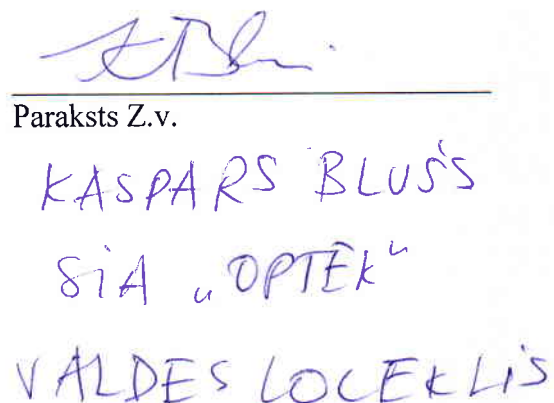 Paraksts Z.v.
KASPARS BLUŠS
SIA „OPTEK“
VALDES LOCEKLIS